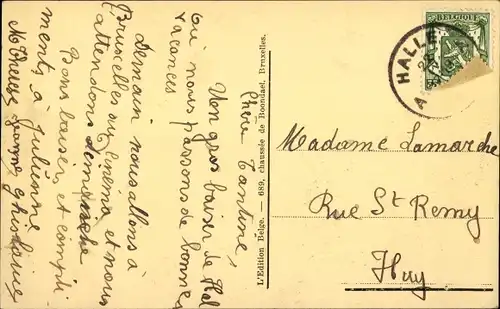 Chère Tantine,
Un gros baiser de Hal
où nous passons de bonnes
vacances
Demain nous allons à
Bruxelles au cinema et nous
attendons dimanche
Bons baisers et compli
ments à Julienne
L'Edition Belge. — 689, chaussée de Boondael, Bruxelles.
BELGIQUE
HALLE
A
Madame Lamarche
Rue St Remy
Huy